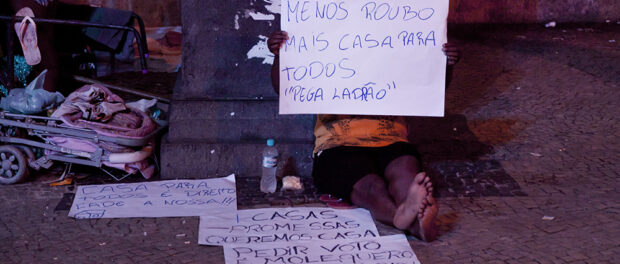 MENOS ROUBO
MAIS CASA PARA
TODOS
"PEGA LADRÃO"
CASA PARA
TODOS E DIREITO
CADE A NOSSA!!!
CASAS
PROMESSAS
QUEREMOS CASA
PEDIR VOTO